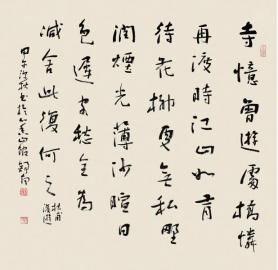 寺憶曾遊處橋憐
再渡時江山如有
待花柳更無私野
潤煙光薄沙暄日
色遲客愁全為
減舍此復何之 杜甫後遊
甲午深秋書於山館